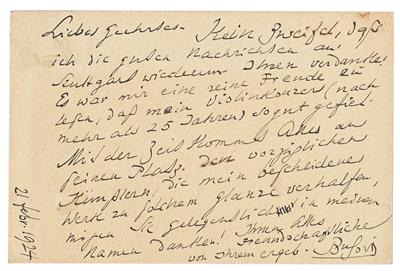 Liebes Geehrtes. Kein Zweifel, daß
ich die guten Nachrichten aus
Stuttgart wiederum Ihnen verdanke.
Es war mir eine reine Freude zu
lesen, daß mein Violinkonzert (nach
mehr als 25 Jahren) so gut gefiel.
Mit der Zeit kommt Alles an
seinen Platz. Den vorzüglichen
Künstlern, die mein bescheidenes
Werk zu solchem Glanze verhalfen,
mögen Sie gelegentlich in meinem
Namen danken! Ihnen Alles
Freundschaftliche
von Ihrem ergeb. Busoni
21 febr. 1924